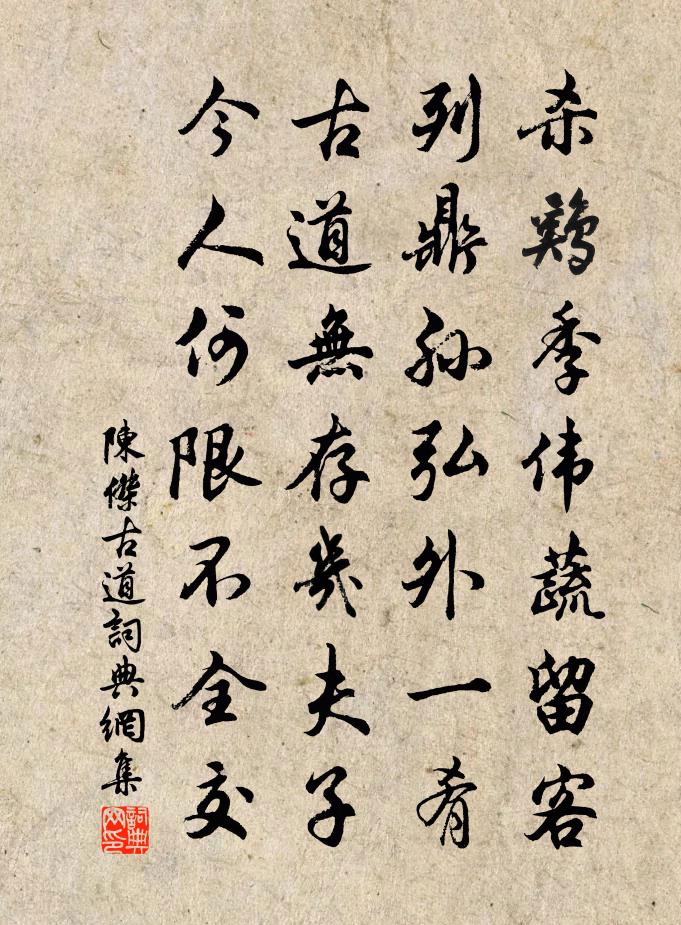 杀鷄季伟蔬留客
列鼎孙弘外一肴
古道無存幾夫子
今人何限不全交
陳傑古道詞典網集
詞典网印